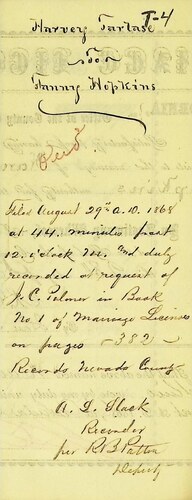 T-4
Harvey Tartase
to
Fanny Hopkins
Filed August 29th A.D. 1868
at 44 minutes past
12 o'clock M. and duly
recorded at request of
J. C. Palmer in Book
No 1 of Marriage Licenses
on pages 382
Records Nevada County
Recorder
per R B Patton
Deputy